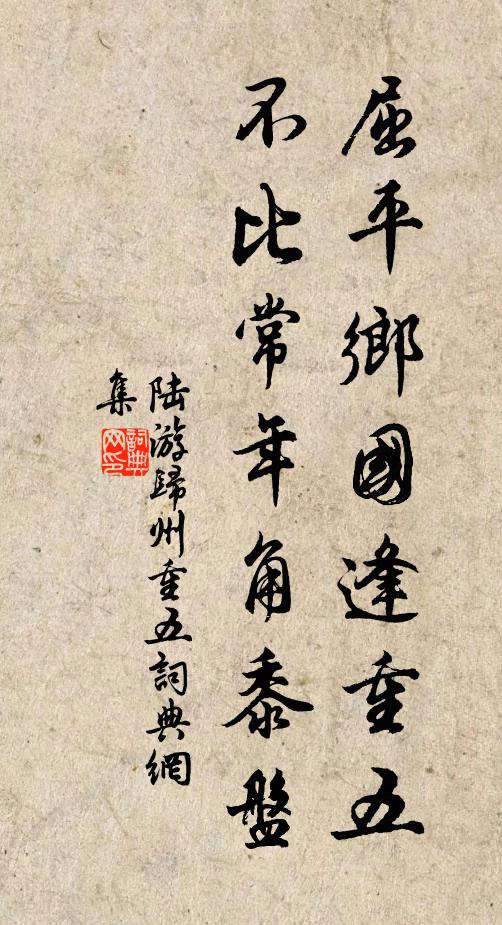 屈平鄉國逢重五
不比常年角黍盤
陸游歸州重五詞典網
集
詞典網印